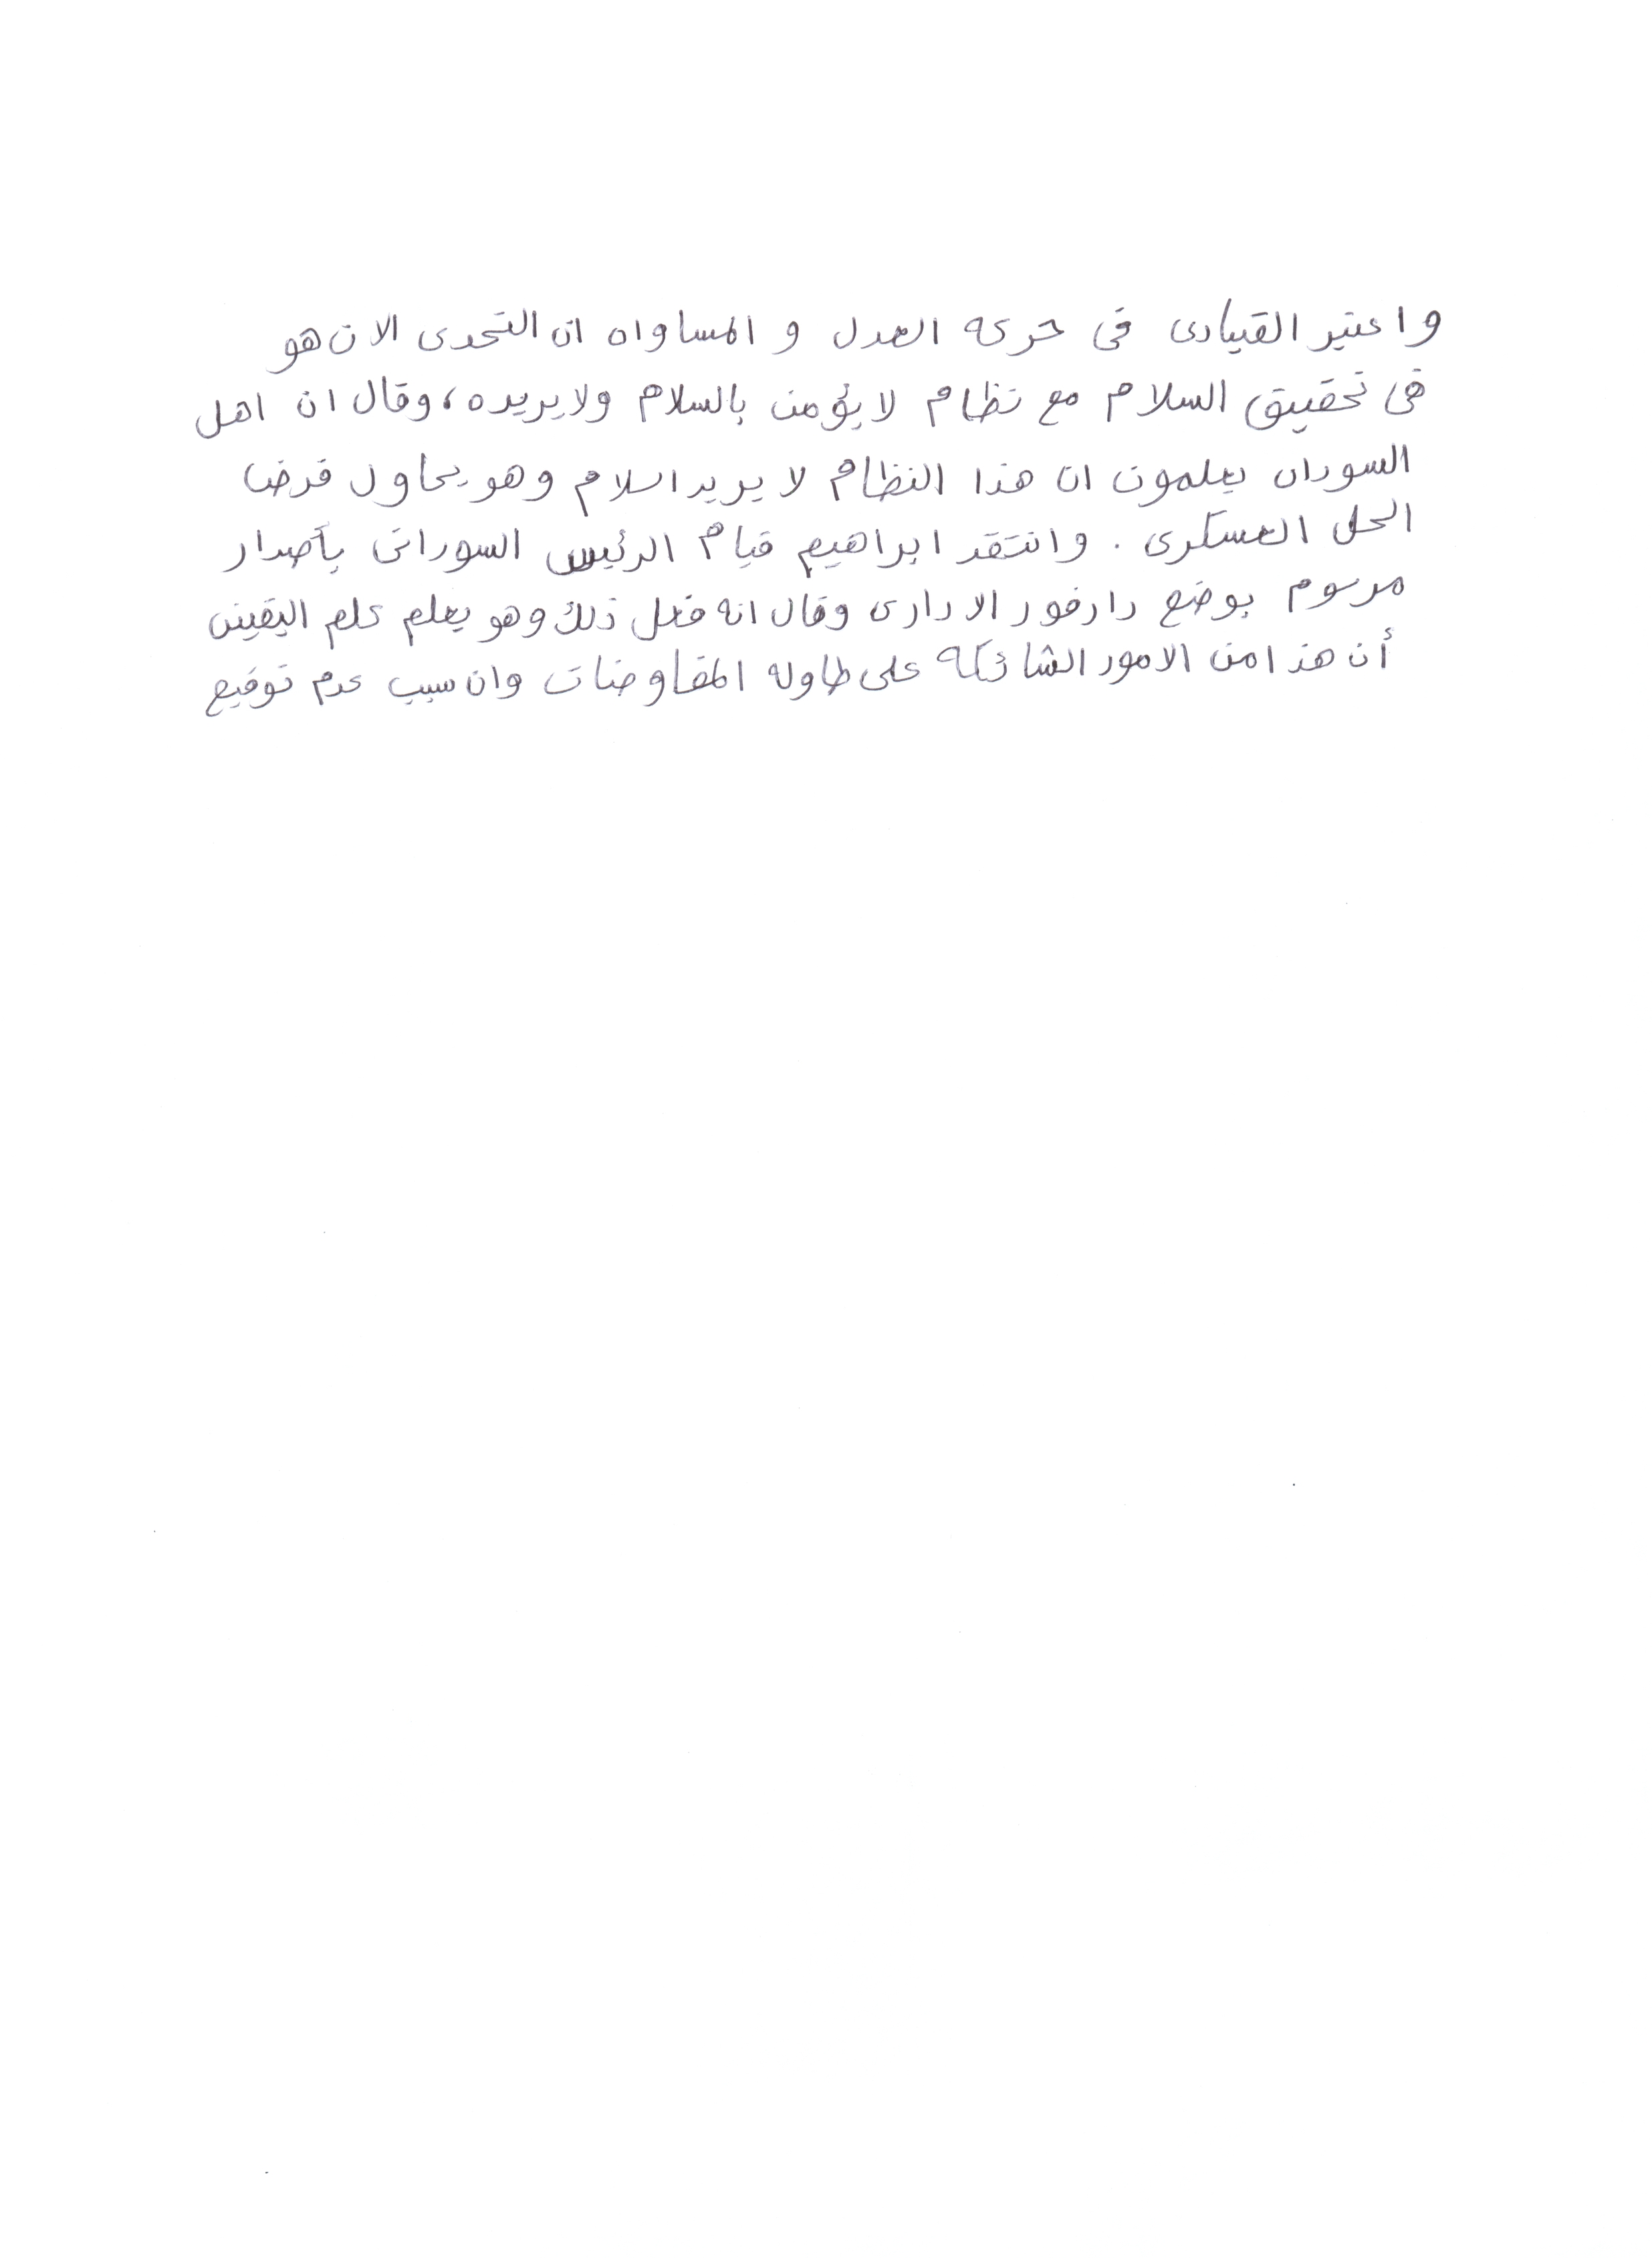 واعتبر القيادى فى حركه العدل و المساواه ان التحدى الان هو
فى تحقيق السلام مع نظام لا يؤمن بالسلام ولا يريده، وقال ان اهل
السودان يعلمون ان هذا النظام لا يريد اسلام وهو يحاول فرض
الحل العسكرى . وانتقد ابراهيم قيام الرئيس السودانى بأصدار
مرسوم بوضع دارفور الادارى وقال انه فعل ذلك وهو يعلم علم اليقين
أن هذا من الامور الشائكه على طاوله المفاوضات وان سبب عدم توقيع